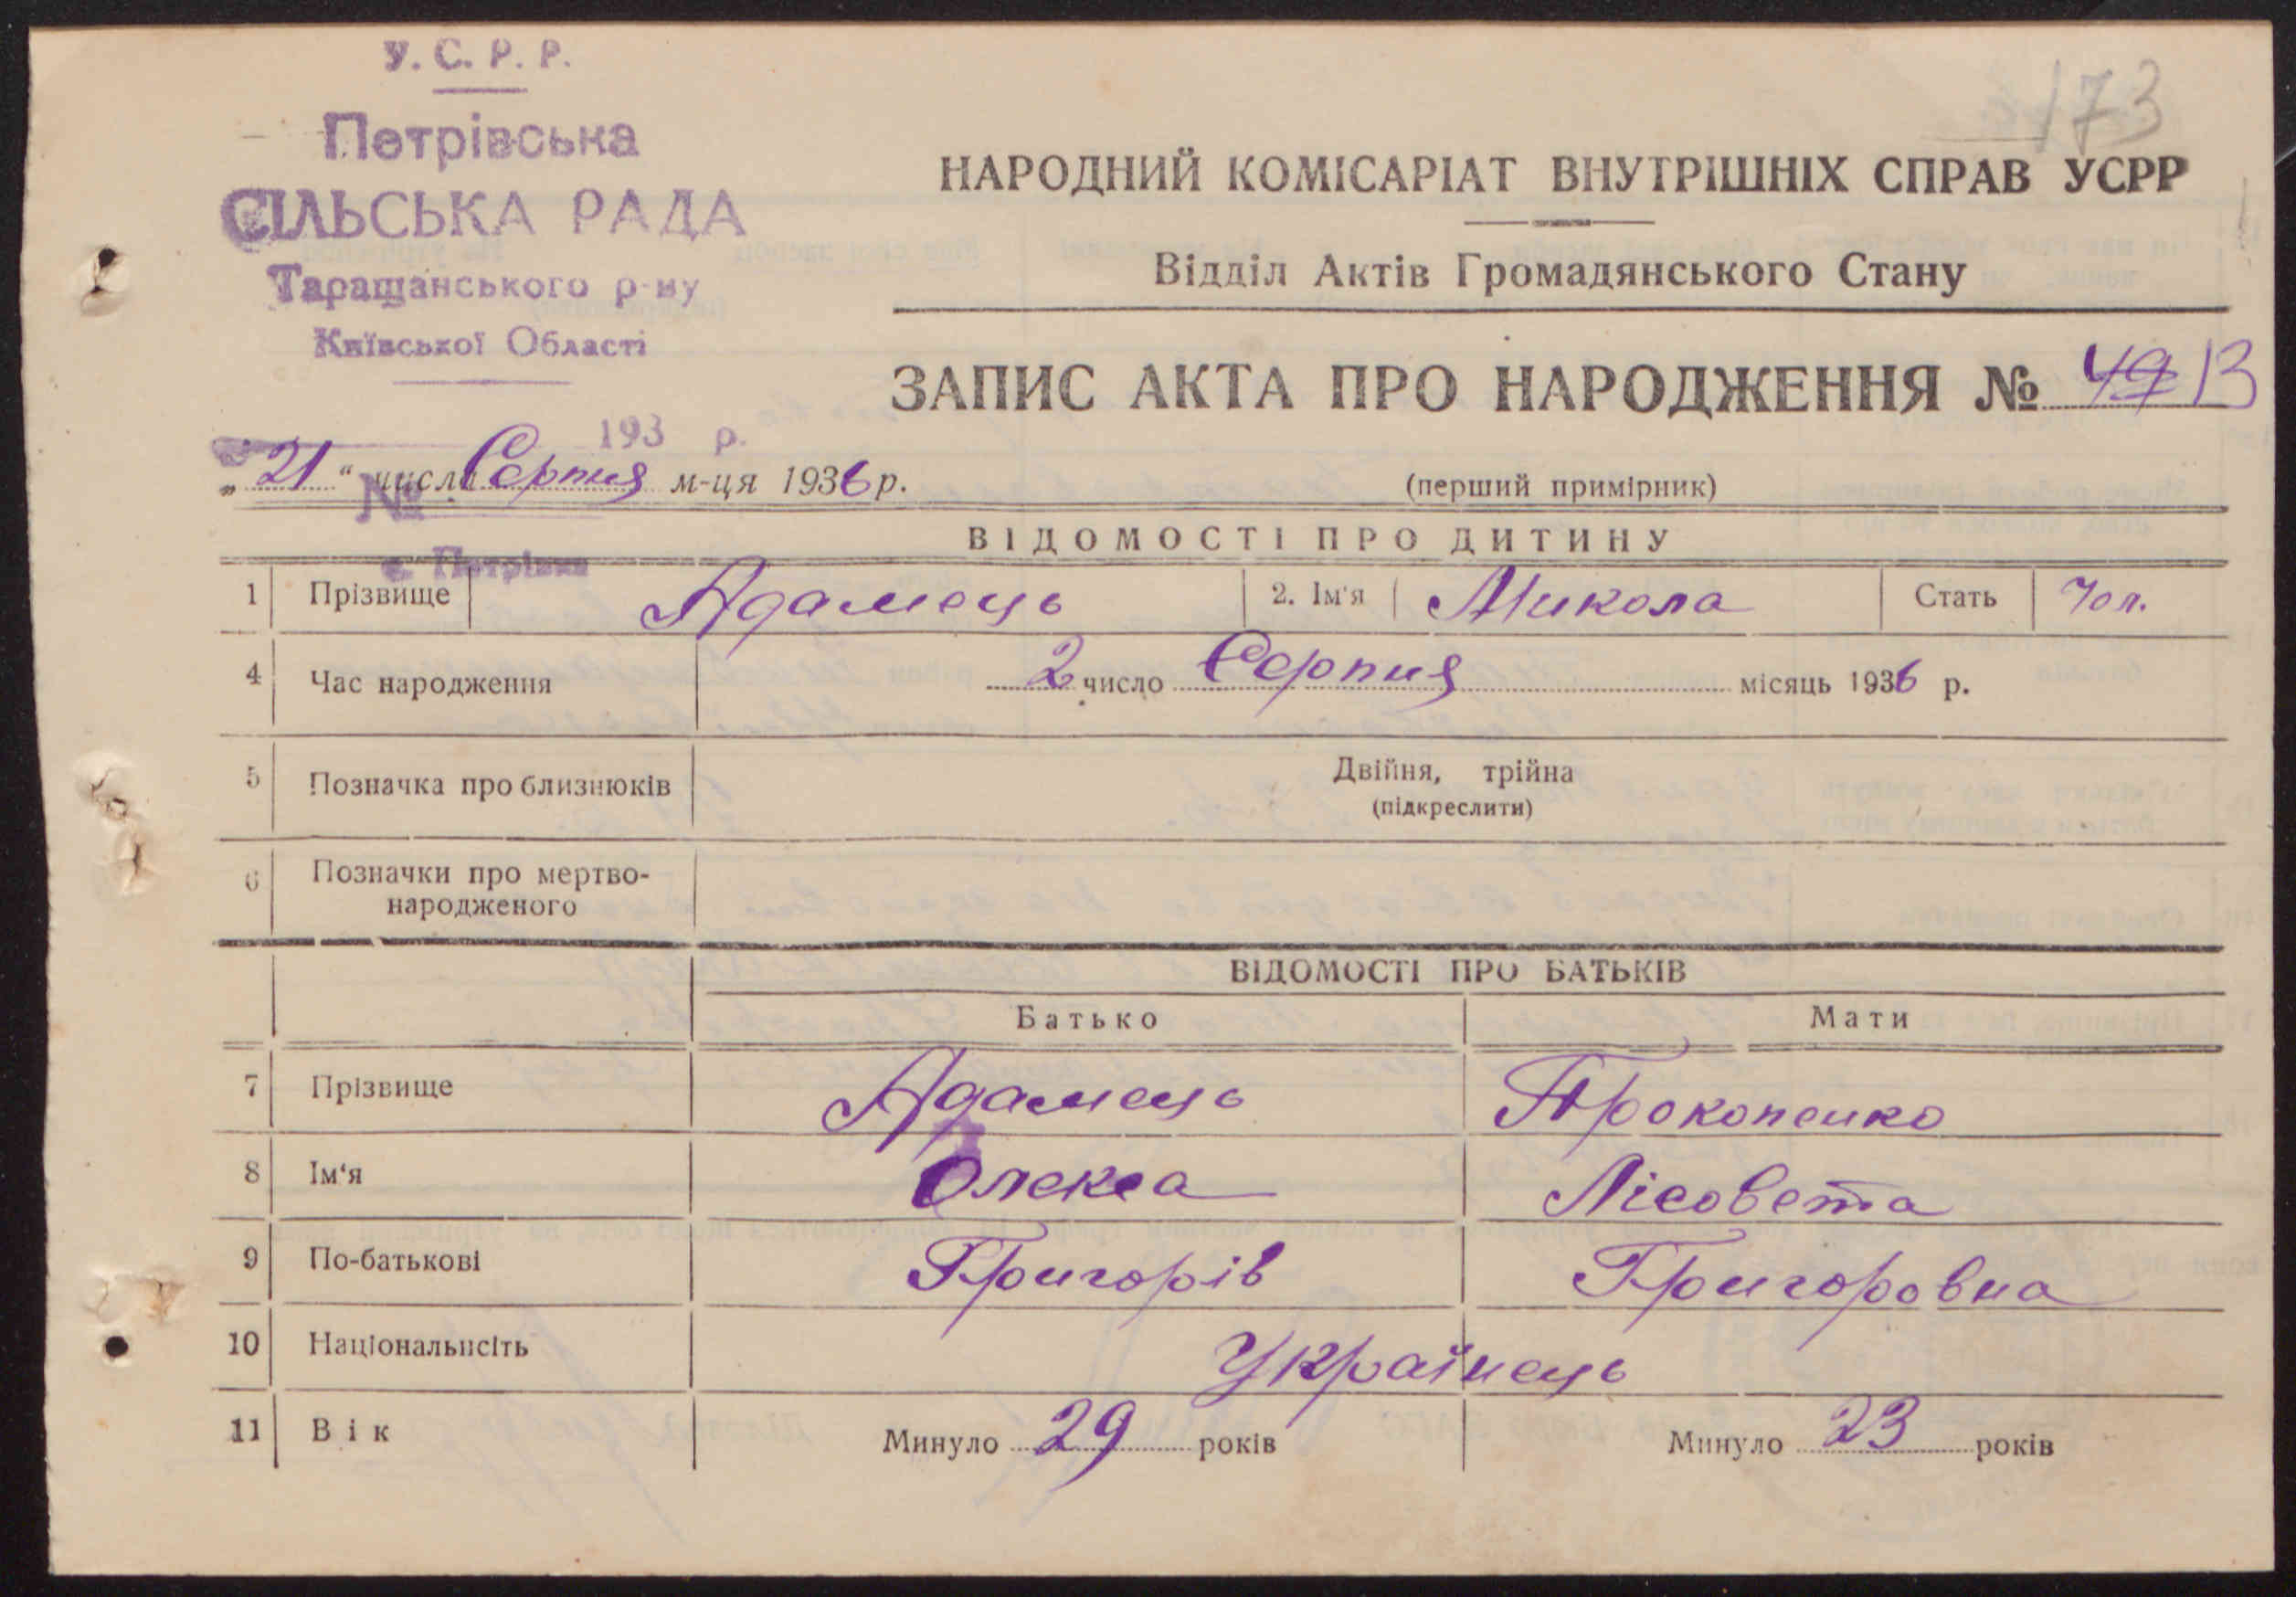 У. С. Р. Р.
173
Петрівська
СІЛЬСЬКА РАДА
Таращанського р-ну
Київської Області
193 р.
№
с. Петрівка
НАРОДНИЙ КОМІСАРІАТ ВНУТРІШНІХ СПРАВ УСРР
Відділ Актів Громадянського Стану
ЗАПИС АКТА ПРО НАРОДЖЕННЯ № 49 13
„21“ числа Серпня м-ця 1936 р.
(перший примірник)
ВІДОМОСТІ ПРО ДИТИНУ
1 Прізвище Адамець 2. Ім'я Микола Стать Чол.
4 Час народження 2 число Серпня місяць 1936 р.
5 Позначка про близнюків Двійня, трійна
(підкреслити)
6 Позначки про мертво-
народженого
ВІДОМОСТІ ПРО БАТЬКІВ
Батько Мати
7 Прізвище Адамець Прокопенко
8 Ім‘я Олекса Лісовета
9 По-батькові Григорів Григоровна
10 Національнсіть Українець
11 Вік Минуло 29 років Минуло 23 років